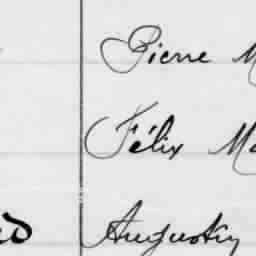 Pierre M
Félix Ma
Augustin